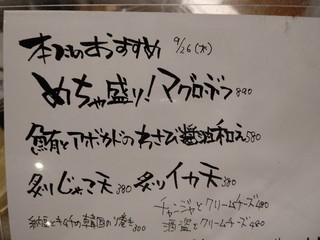 本日のおすすめ 9/26(木)
めちゃ盛り!マグロブツ 890
鮪とアボカドのわさび醤油和え 580
炙りじゃこ天 380 炙りイカ天 380
チャンジャとクリームチーズ 480
納豆とキムチの韓国のり巻き 300 酒盗とクリームチーズ 480